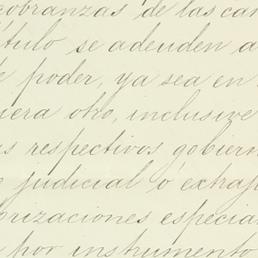 cobranzas de las can
ítulo se adeuden a
e poder, ya sea en
iera otro, inclusive
as respectivos gobiern
judicial o extraj
orizaciones especia
por instrumento